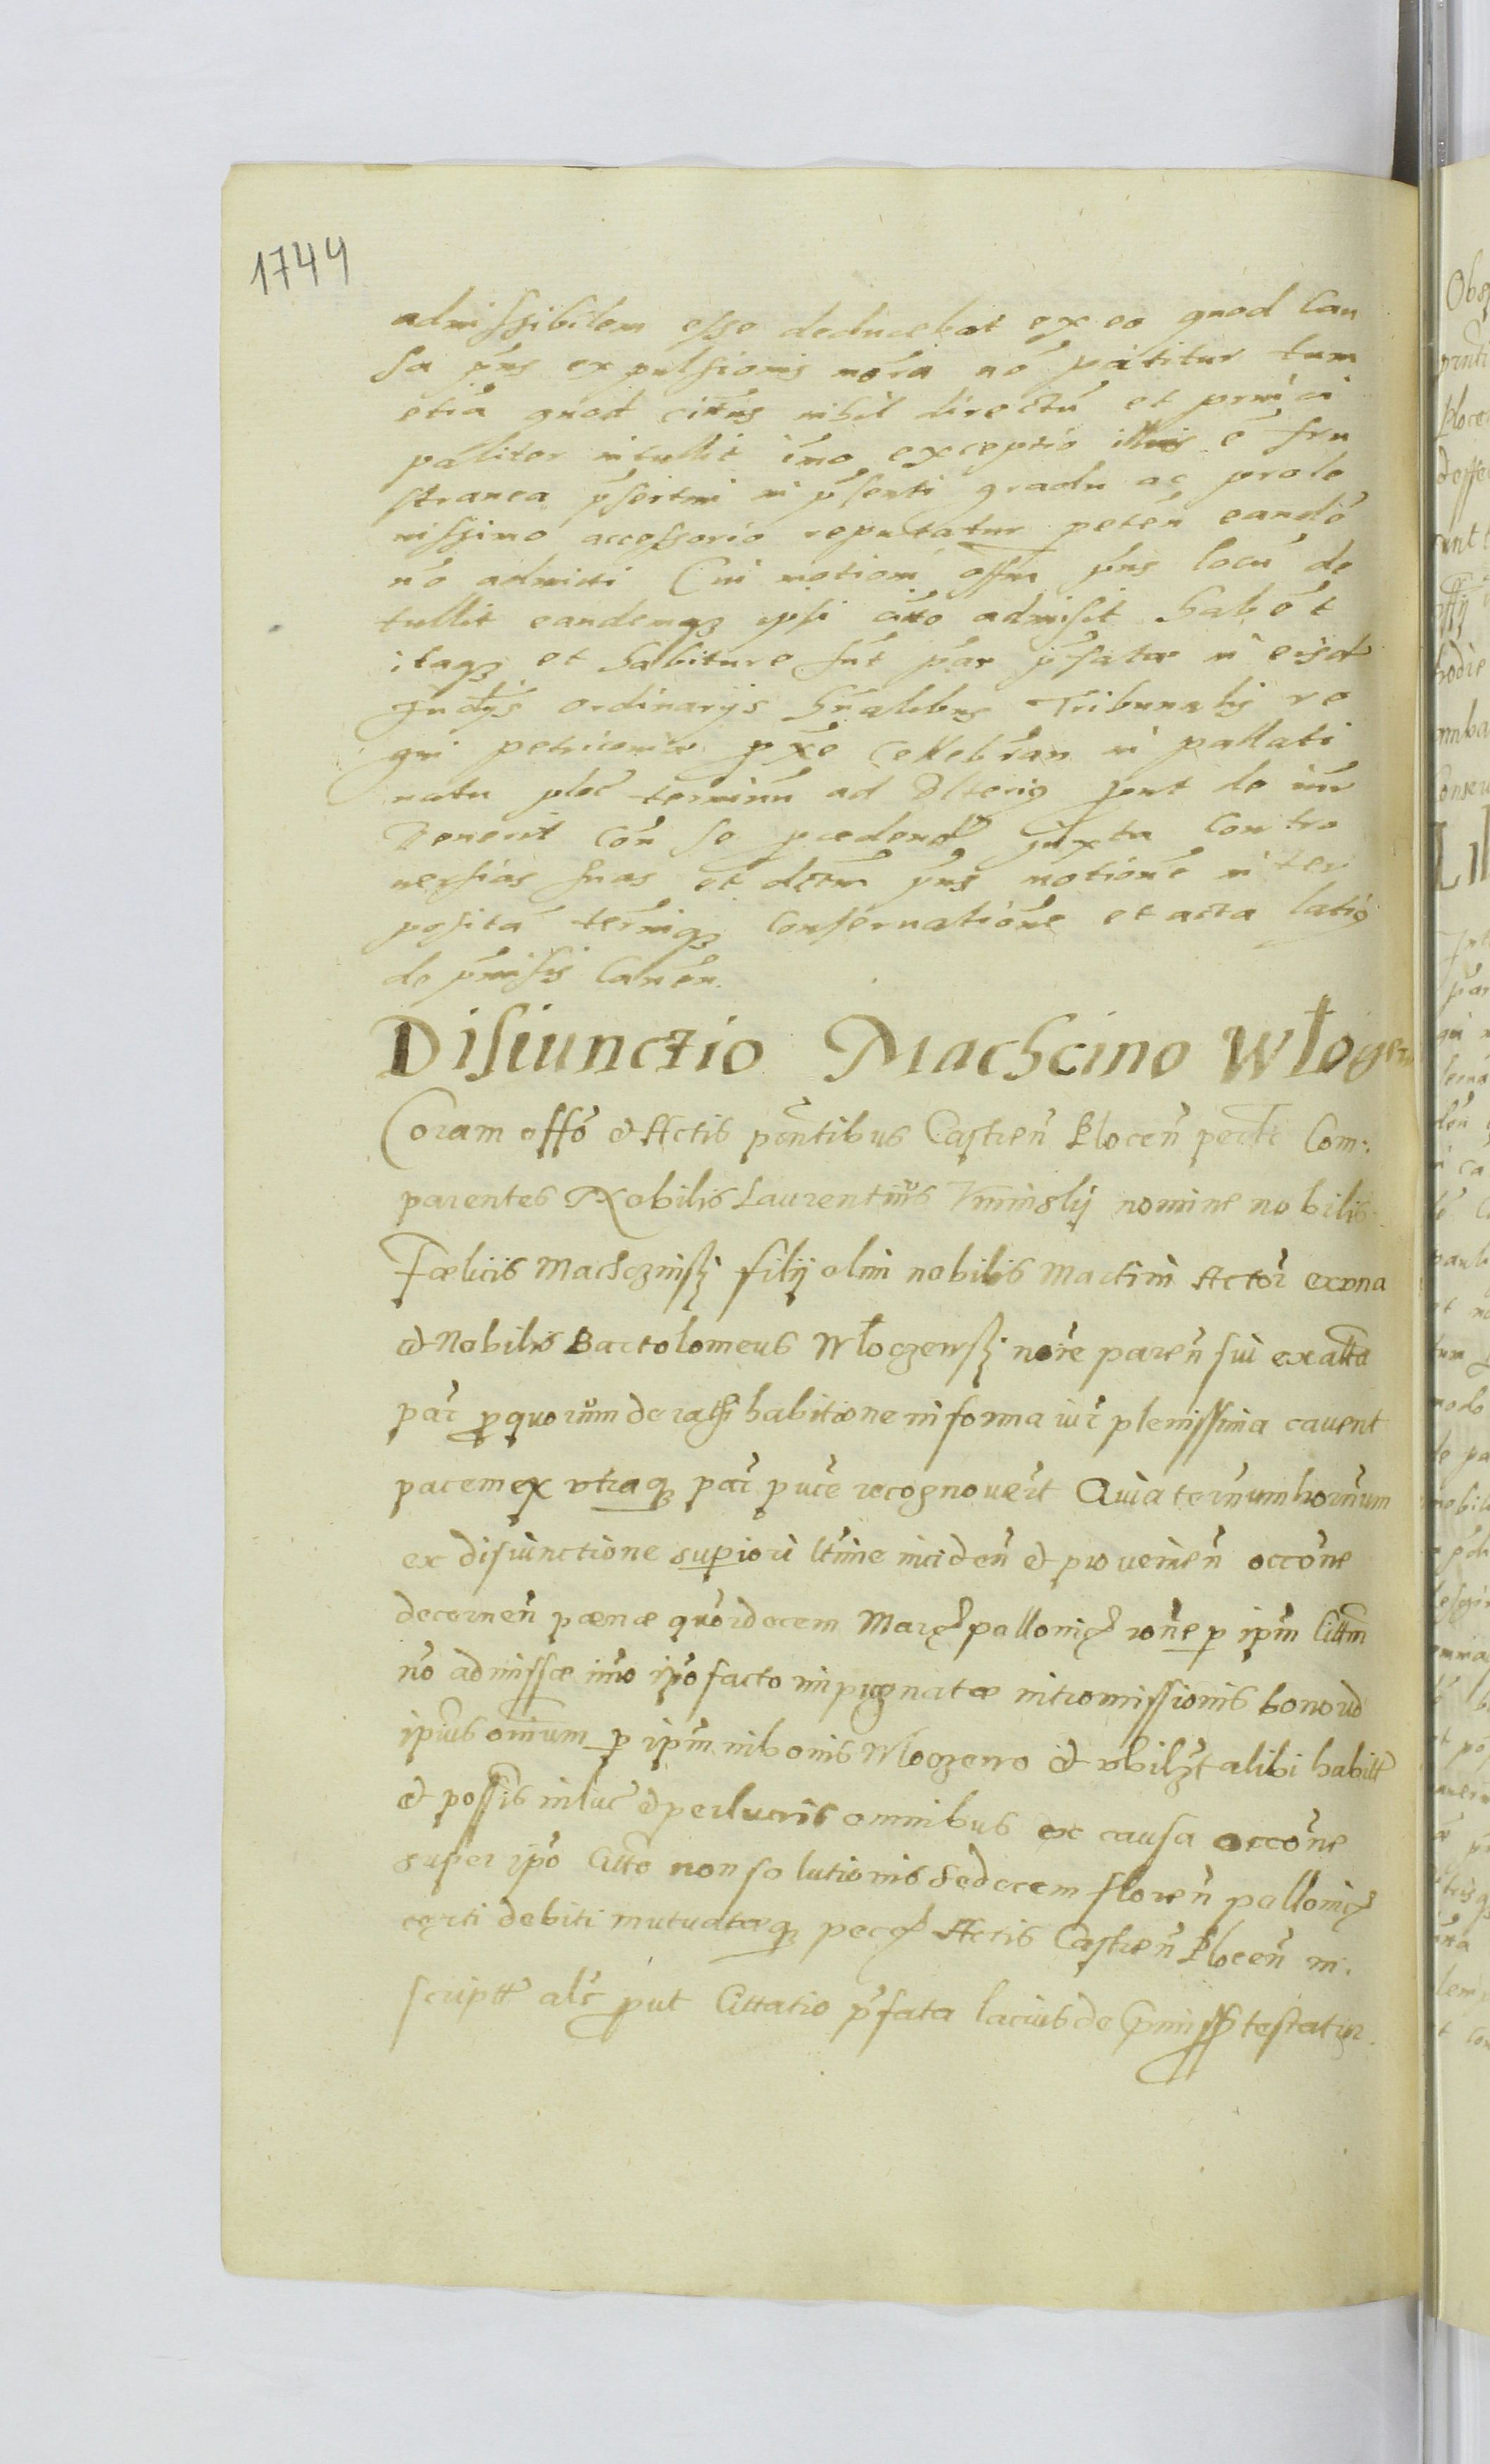 1744
admissibilem esse deducebat ex eo quod Cau
sa pns expulsionis mora nō patitur tum
etiā quod citus nihil directū et princi
paliter intullit imo exceptio illius ē fru
stranea psertim in psenti gradu ac prole
nissimo accessorio reputatur petēn eandē
nō admitti Cui motioni offm pns locū de
tullit eandemq ipsi citto admisit Habēt
itaq et habiture sūt par pfatæ in eisd
Judijs ordinarijs gnalibus Tribunalis re
gni petricouiæ pxe Cellebran in pallati
natu ploc terminū ad Vlterig prut de iur
Venerit Con se pcedend juxta Contro
uersias suas et decrm pns motionē inter
positā termiq Conseruatione et acta latig
de pmissis Canen.
Disiunctio Machcino Włogen
Coram offo et Actis pntibus Castren Plocen perlr Com:
parentes Nobilis Laurentius Vminskij nomine nobilis
Fælicis Machczinskj filij olim nobilis Martini Actor ex una
et Nobilis Bartolomeus Wloczewskj noïe paren sui ex alta
par p quorum de rathi habitione in forma iur plenissima cauent
pacem ex vtraq par p uce recognouert Quia ternum hornum
ex disiunctione superiori ltme inciden et prouenien occone
decernen pænæ quordecem Marc pallonic rone p ipm Cittm
nō admissæ imo ipo facto impugnatæ intromissionis bonord
ipius omium p ipm in bonis Wloczewo et vbilzt alibi habitt
et possis inluc et perlucris omnibus ex causa occone
super ipo Citto non solutionis Sedecem floren pallonic
certi debiti mutuatæq pec Actis Castren Plocen in:
scriptt als prut Cittatio pfata lacius de pmiss testatur.